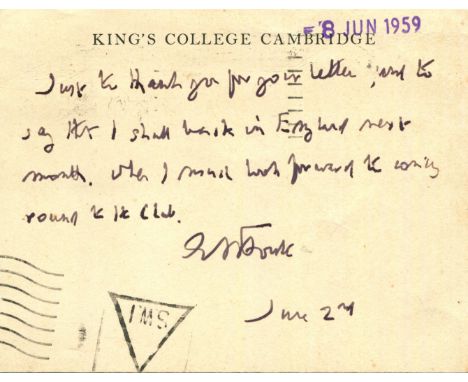 8 JUN 1959
KING'S COLLEGE CAMBRIDGE
Just to thank you for your letter, and to
say that I shall back in England next
month, when I much look forward to coming
round to the Club.
June 2nd
IMS